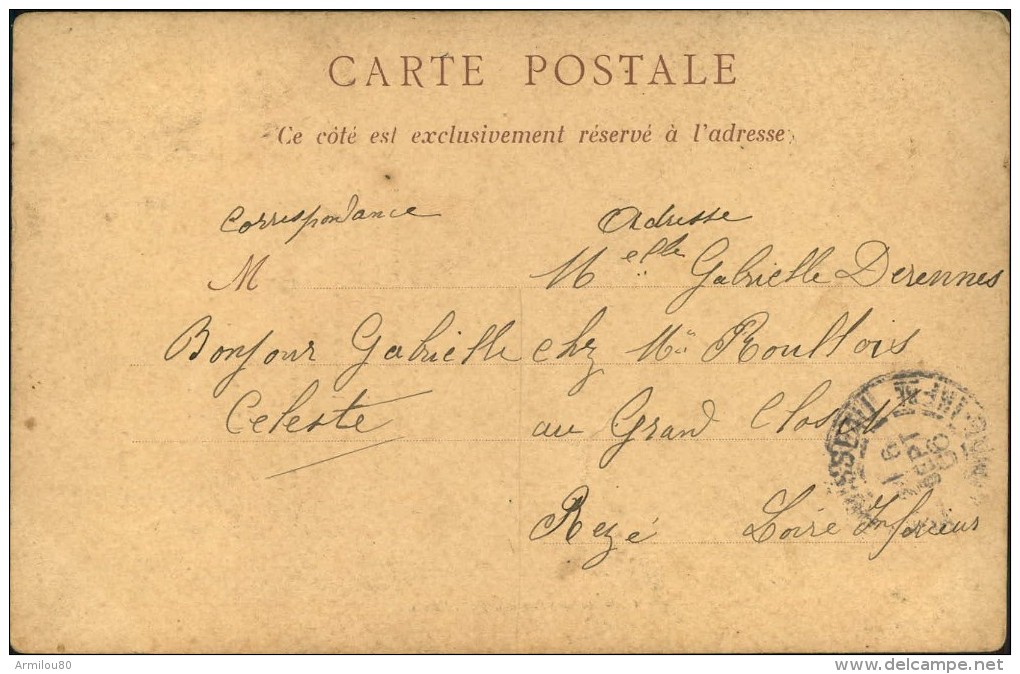 CARTE POSTALE
Ce côté est exclusivement réservé à l'adresse
Correspondance
M
Bonjour Gabrielle
Celeste
Adresse
Melle Gabrielle Derennes
chez Mr Roullois
au Grand Closet
Rezé Loire Inférieur
6
SEPT
06
Armilou80
www.delcampe.net